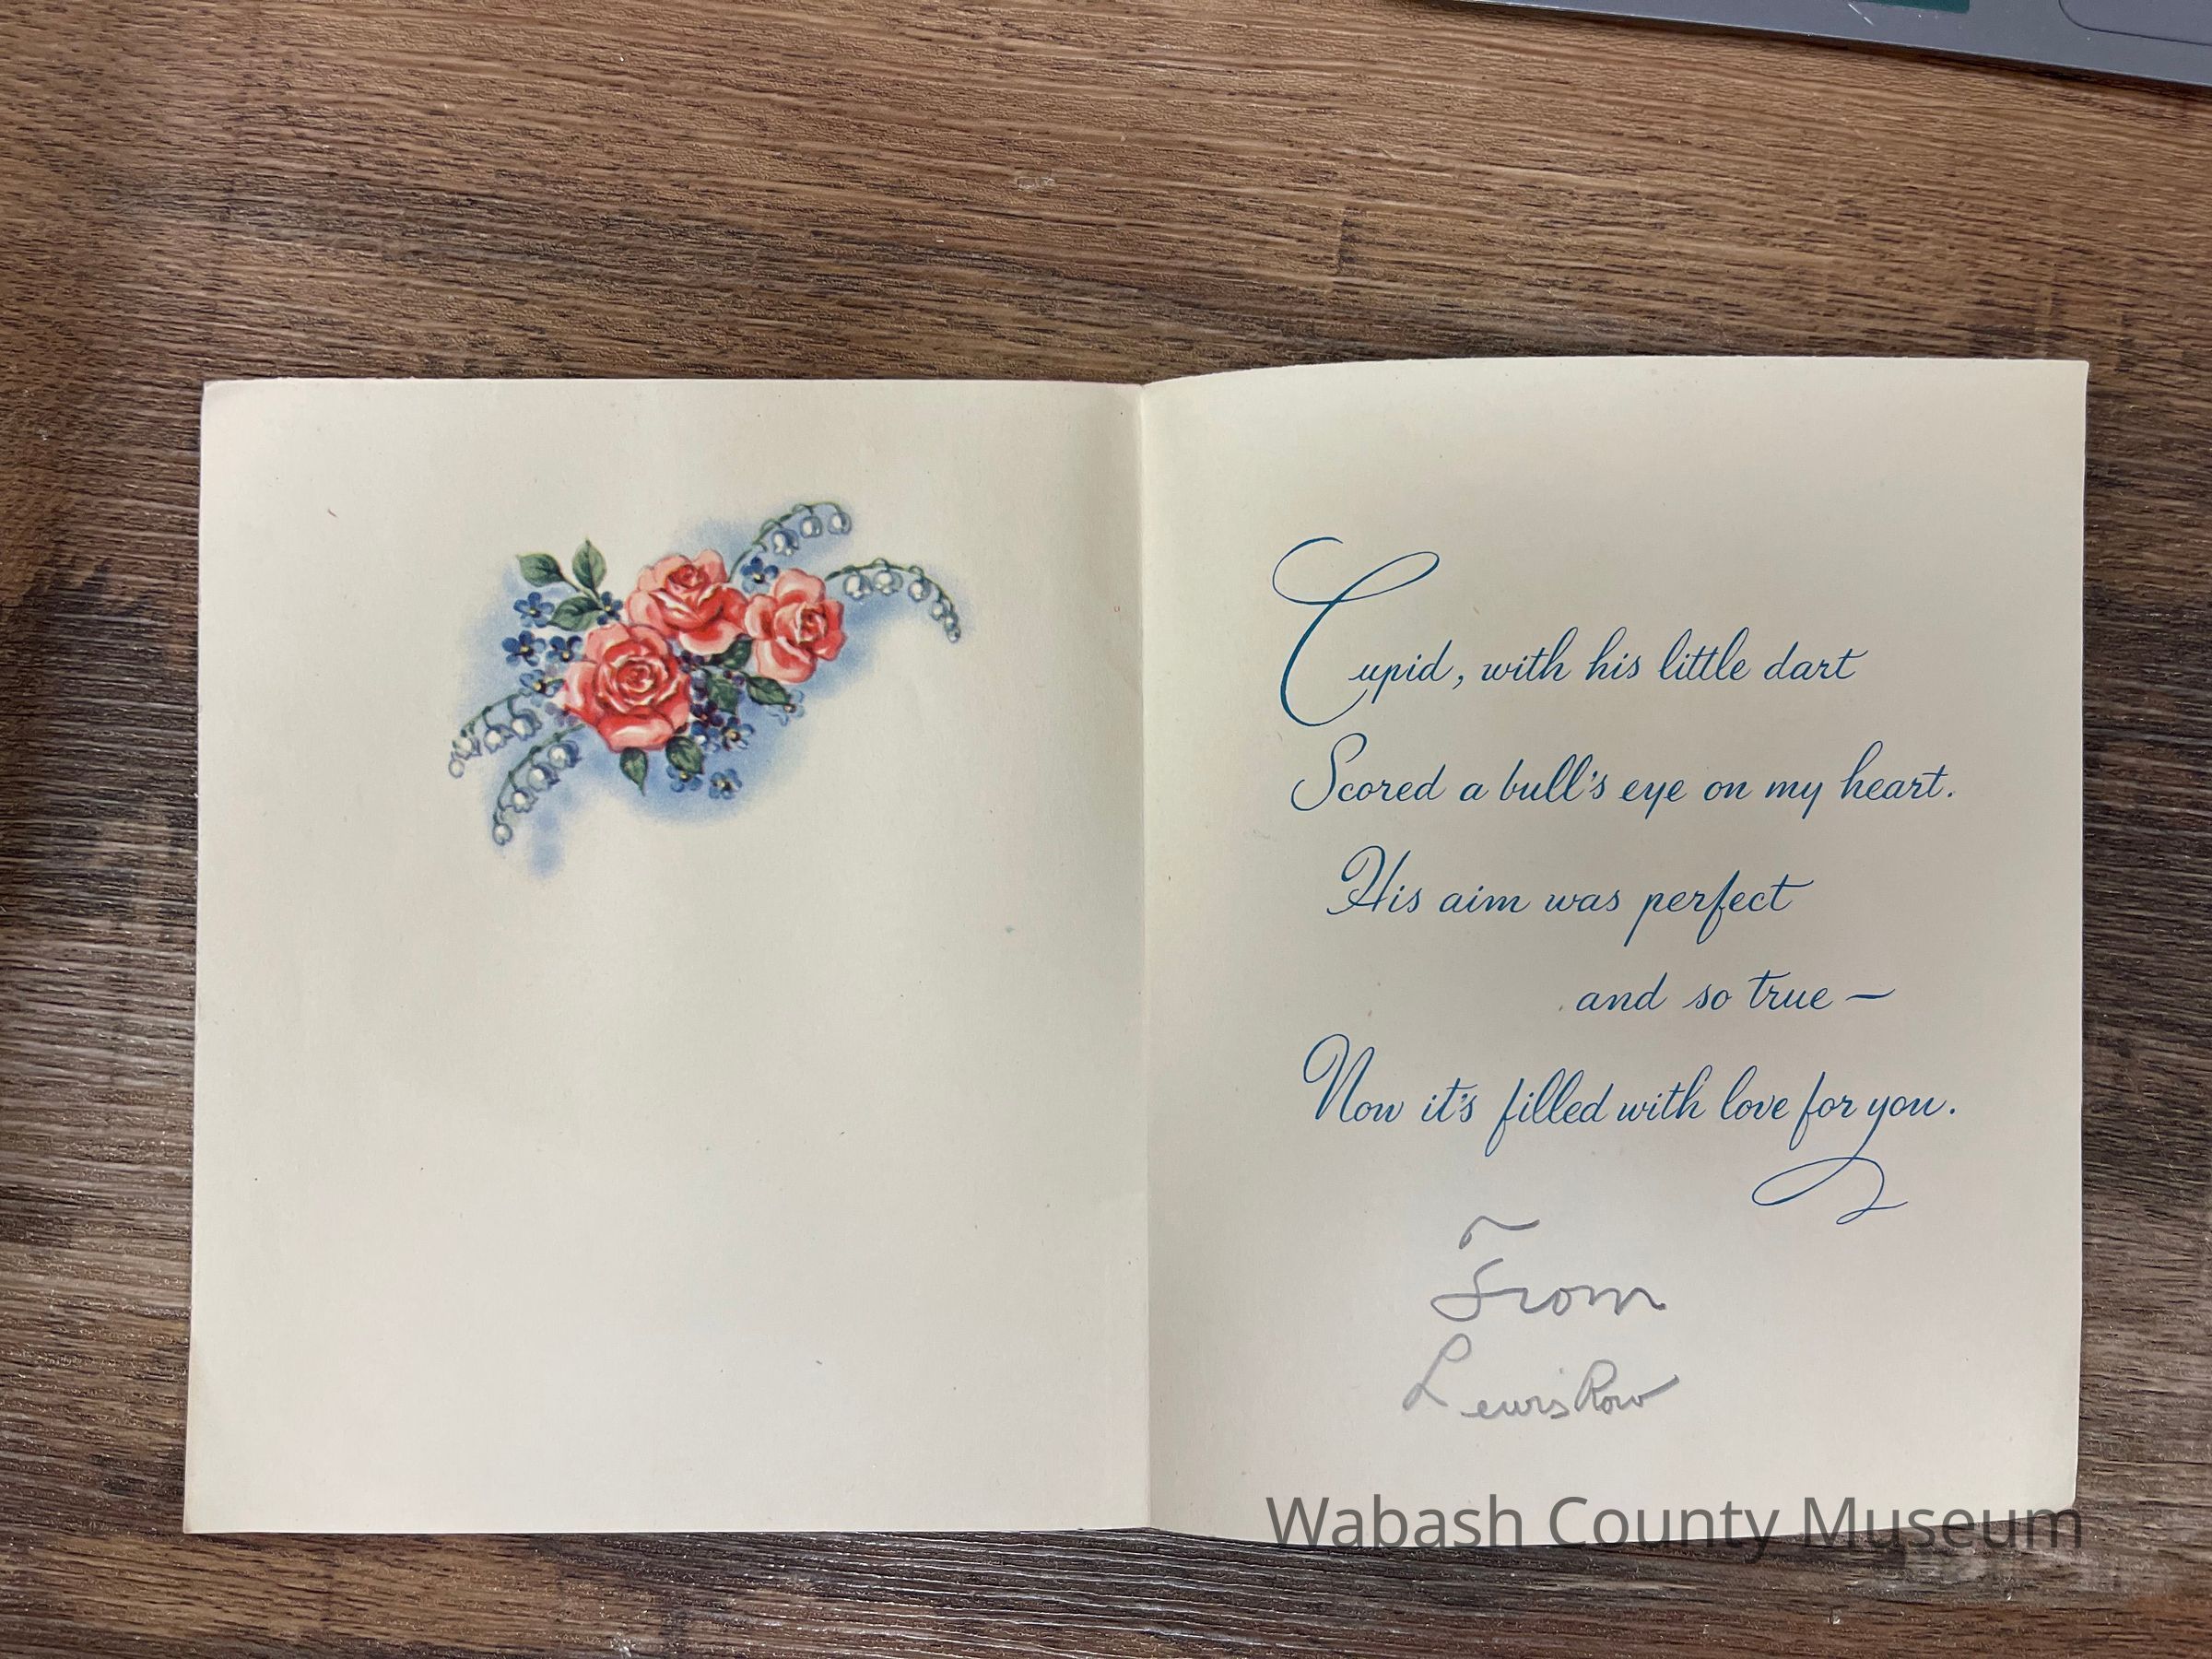 Cupid, with his little dart
Scored a bull's eye on my heart.
His aim was perfect
and so true —
Now it's filled with love for you.
From
Lewis Row
Wabash County Museum